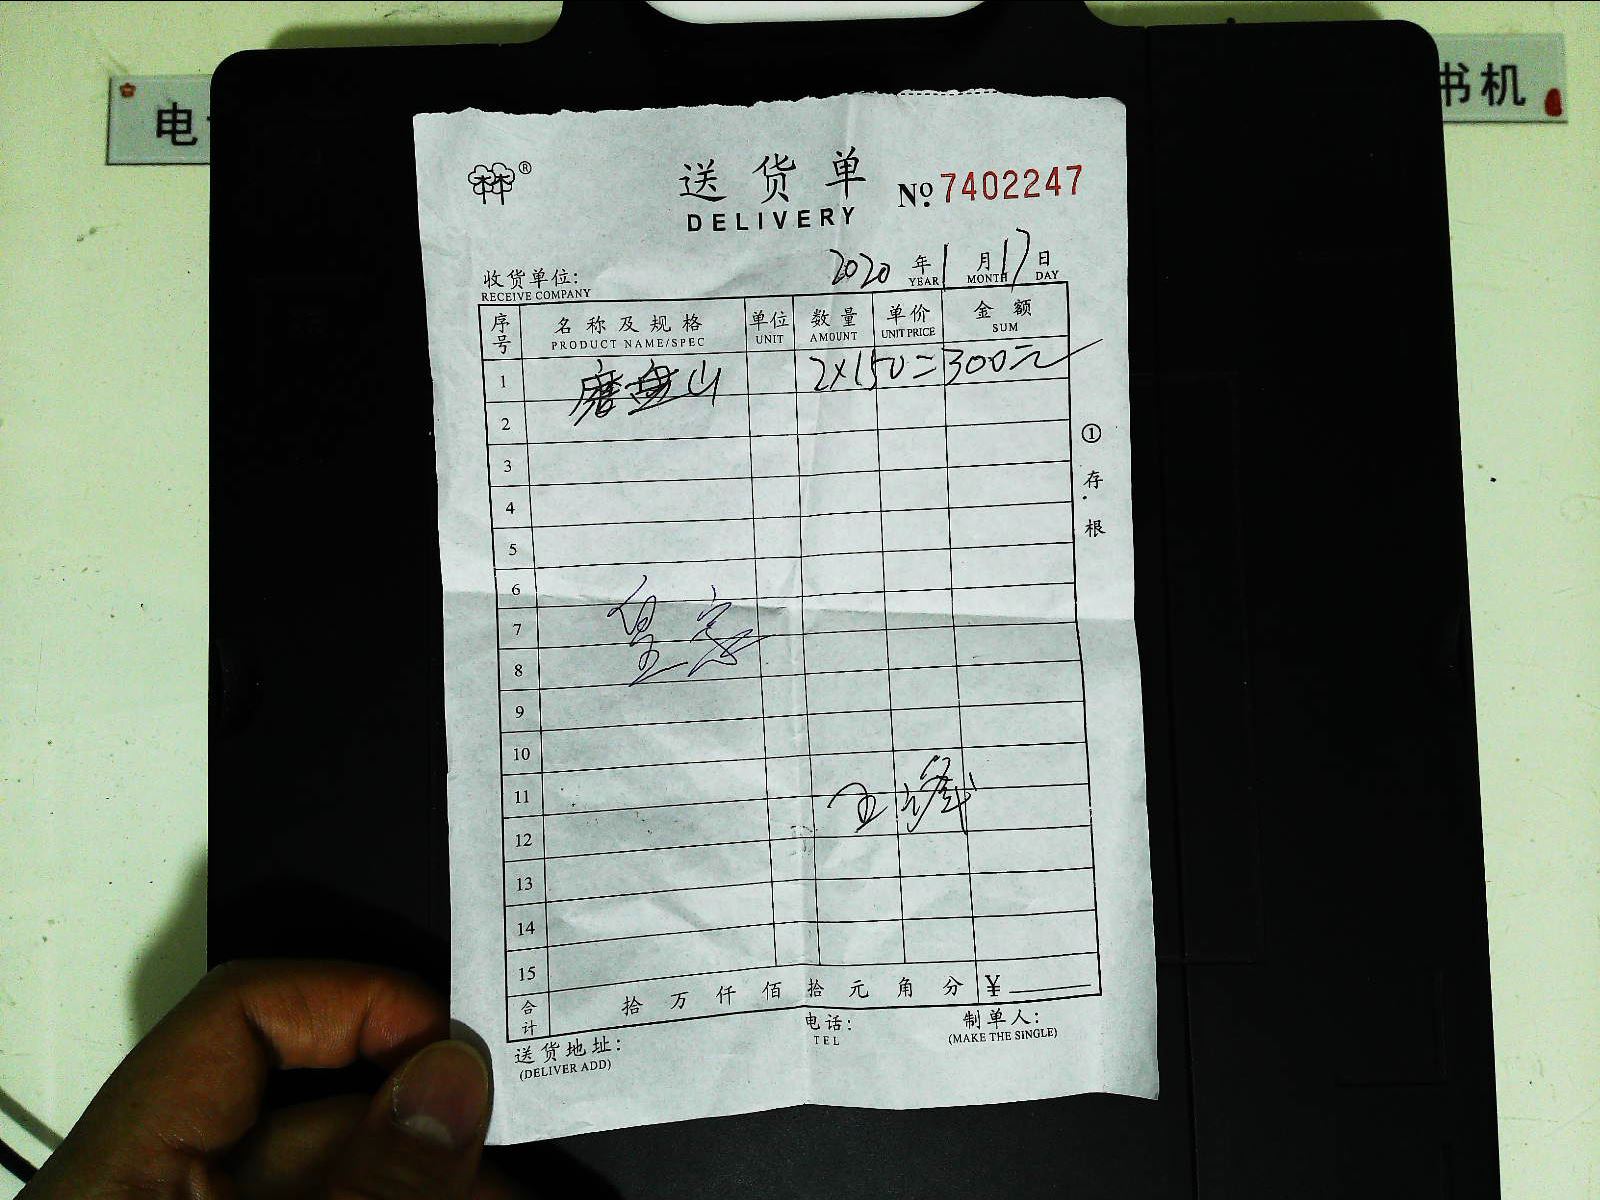 电
书机
林®
送货单
DELIVERY
№ 7402247
2020 年 1 月 17 日
YEAR MONTH DAY
收货单位:
RECEIVE COMPANY
序号 名称及规格 单位 数量 单价 金额
PRODUCT NAME/SPEC UNIT AMOUNT UNIT PRICE SUM
1 磨盘山 2×150=300元
2
3
4
5
6
7 皇家
8
9
10
11
12
13
14
15
合计 拾 万 仟 佰 拾 元 角 分 ¥
① 存根
送货地址:
(DELIVER ADD)
电话:
TEL
制单人:
(MAKE THE SINGLE)